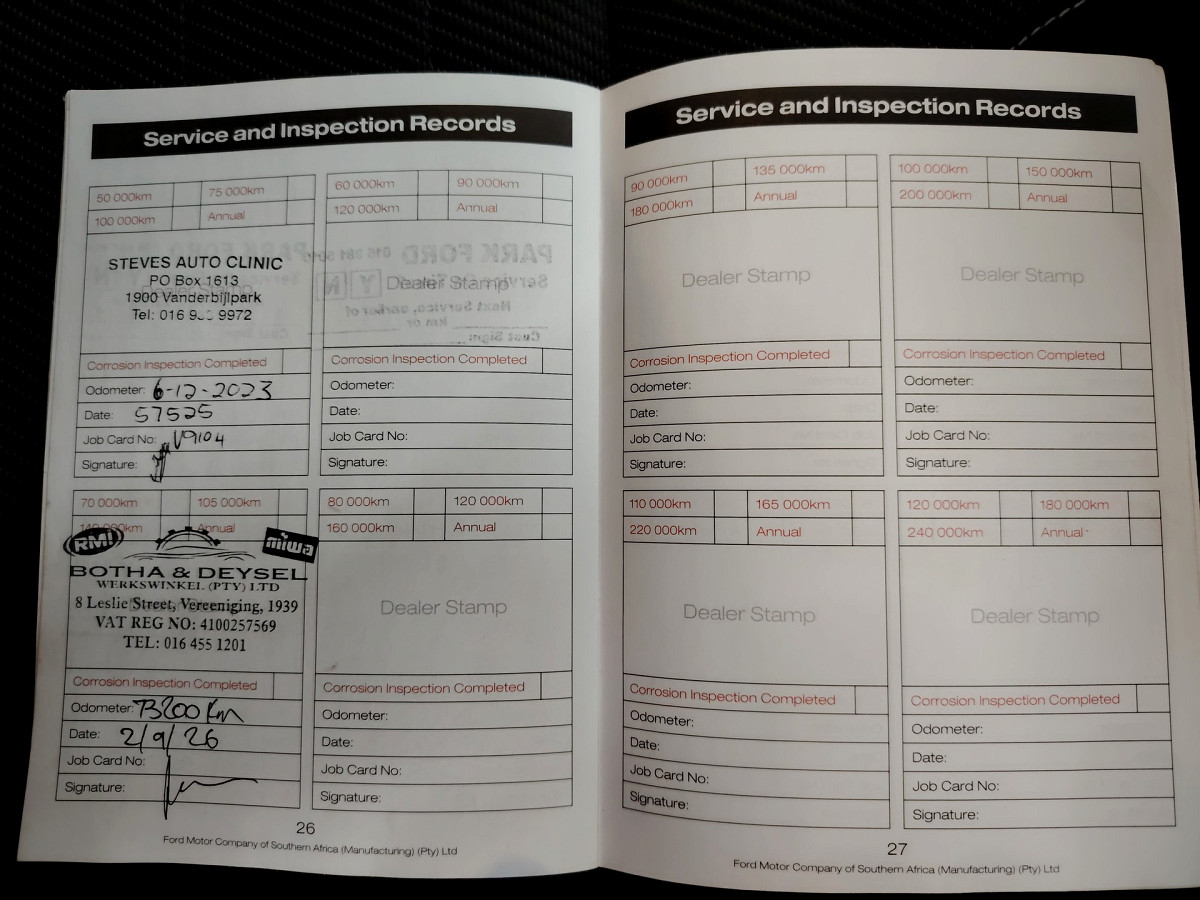 Service and Inspection Records
50 000km 75 000km
100 000km Annual
STEVES AUTO CLINIC
PO Box 1613
1900 Vanderbijlpark
Tel: 016 9 9972
Corrosion Inspection Completed
Odometer: 6-12-2023
Date: 57525
Job Card No: V9104
Signature:
60 000km 90 000km
120 000km Annual
Dealer Stamp
Corrosion Inspection Completed
Odometer:
Date:
Job Card No:
Signature:
70 000km 105 000km
140 000km Annual
RMI miwa
BOTHA & DEYSEL
WERKSWINKEL (PTY) LTD
8 Leslie Street, Vereeniging, 1939
VAT REG NO: 4100257569
TEL: 016 455 1201
Corrosion Inspection Completed
Odometer: 73200 Km
Date: 2/9/26
Job Card No:
Signature:
80 000km 120 000km
160 000km Annual
Dealer Stamp
Corrosion Inspection Completed
Odometer:
Date:
Job Card No:
Signature:
26
Ford Motor Company of Southern Africa (Manufacturing) (Pty) Ltd
Service and Inspection Records
90 000km 135 000km
180 000km Annual
Dealer Stamp
Corrosion Inspection Completed
Odometer:
Date:
Job Card No:
Signature:
100 000km 150 000km
200 000km Annual
Dealer Stamp
Corrosion Inspection Completed
Odometer:
Date:
Job Card No:
Signature:
110 000km 165 000km
220 000km Annual
Dealer Stamp
Corrosion Inspection Completed
Odometer:
Date:
Job Card No:
Signature:
120 000km 180 000km
240 000km Annual
Dealer Stamp
Corrosion Inspection Completed
Odometer:
Date:
Job Card No:
Signature:
27
Ford Motor Company of Southern Africa (Manufacturing) (Pty) Ltd